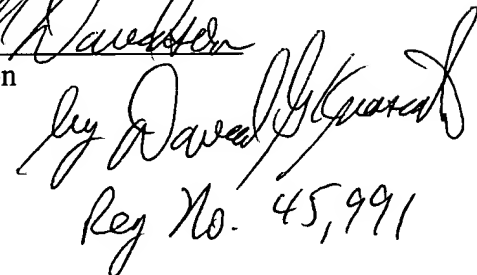 Davidson
n
by David G
Reg No. 45,991